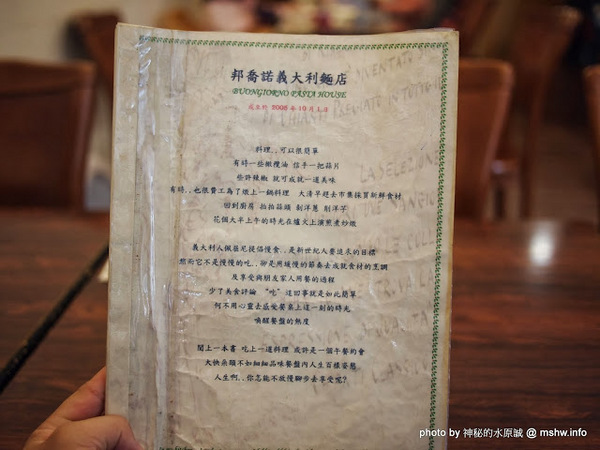 邦喬諾義大利麵店
BUONGIORNO PASTA HOUSE
成立於 2006 年 10 月 1 日
料理..可以很簡單
有時一些橄欖油 信手一把蒜片
些許辣椒 就可成就一道美味
有時..也很費工為了燉上一鍋料理 大清早趕去市集採買新鮮食材
回到廚房 拍拍蒜頭 剝洋蔥 削洋芋
花個大半上午的時光在爐火上演煎煮炒燉
義大利人佩屈尼提倡慢食..是新世紀人要追求的目標
然而它不是慢慢的吃..卻是用緩慢的節奏去成就食材的烹調
及享受與朋友家人用餐的過程
少了美食評論 “吃”這回事就是如此簡單
何不用心靈去感受餐桌上這一刻的時光
喚醒餐盤的熱度
闔上一本書 吃上一道料理 或許是一個午餐約會
大快朵頤不如細細品味餐盤內人生百樣姿態
人生啊..你怎能不放慢腳步去享受呢?
photo by 神秘的水原誠 @ mshw.info